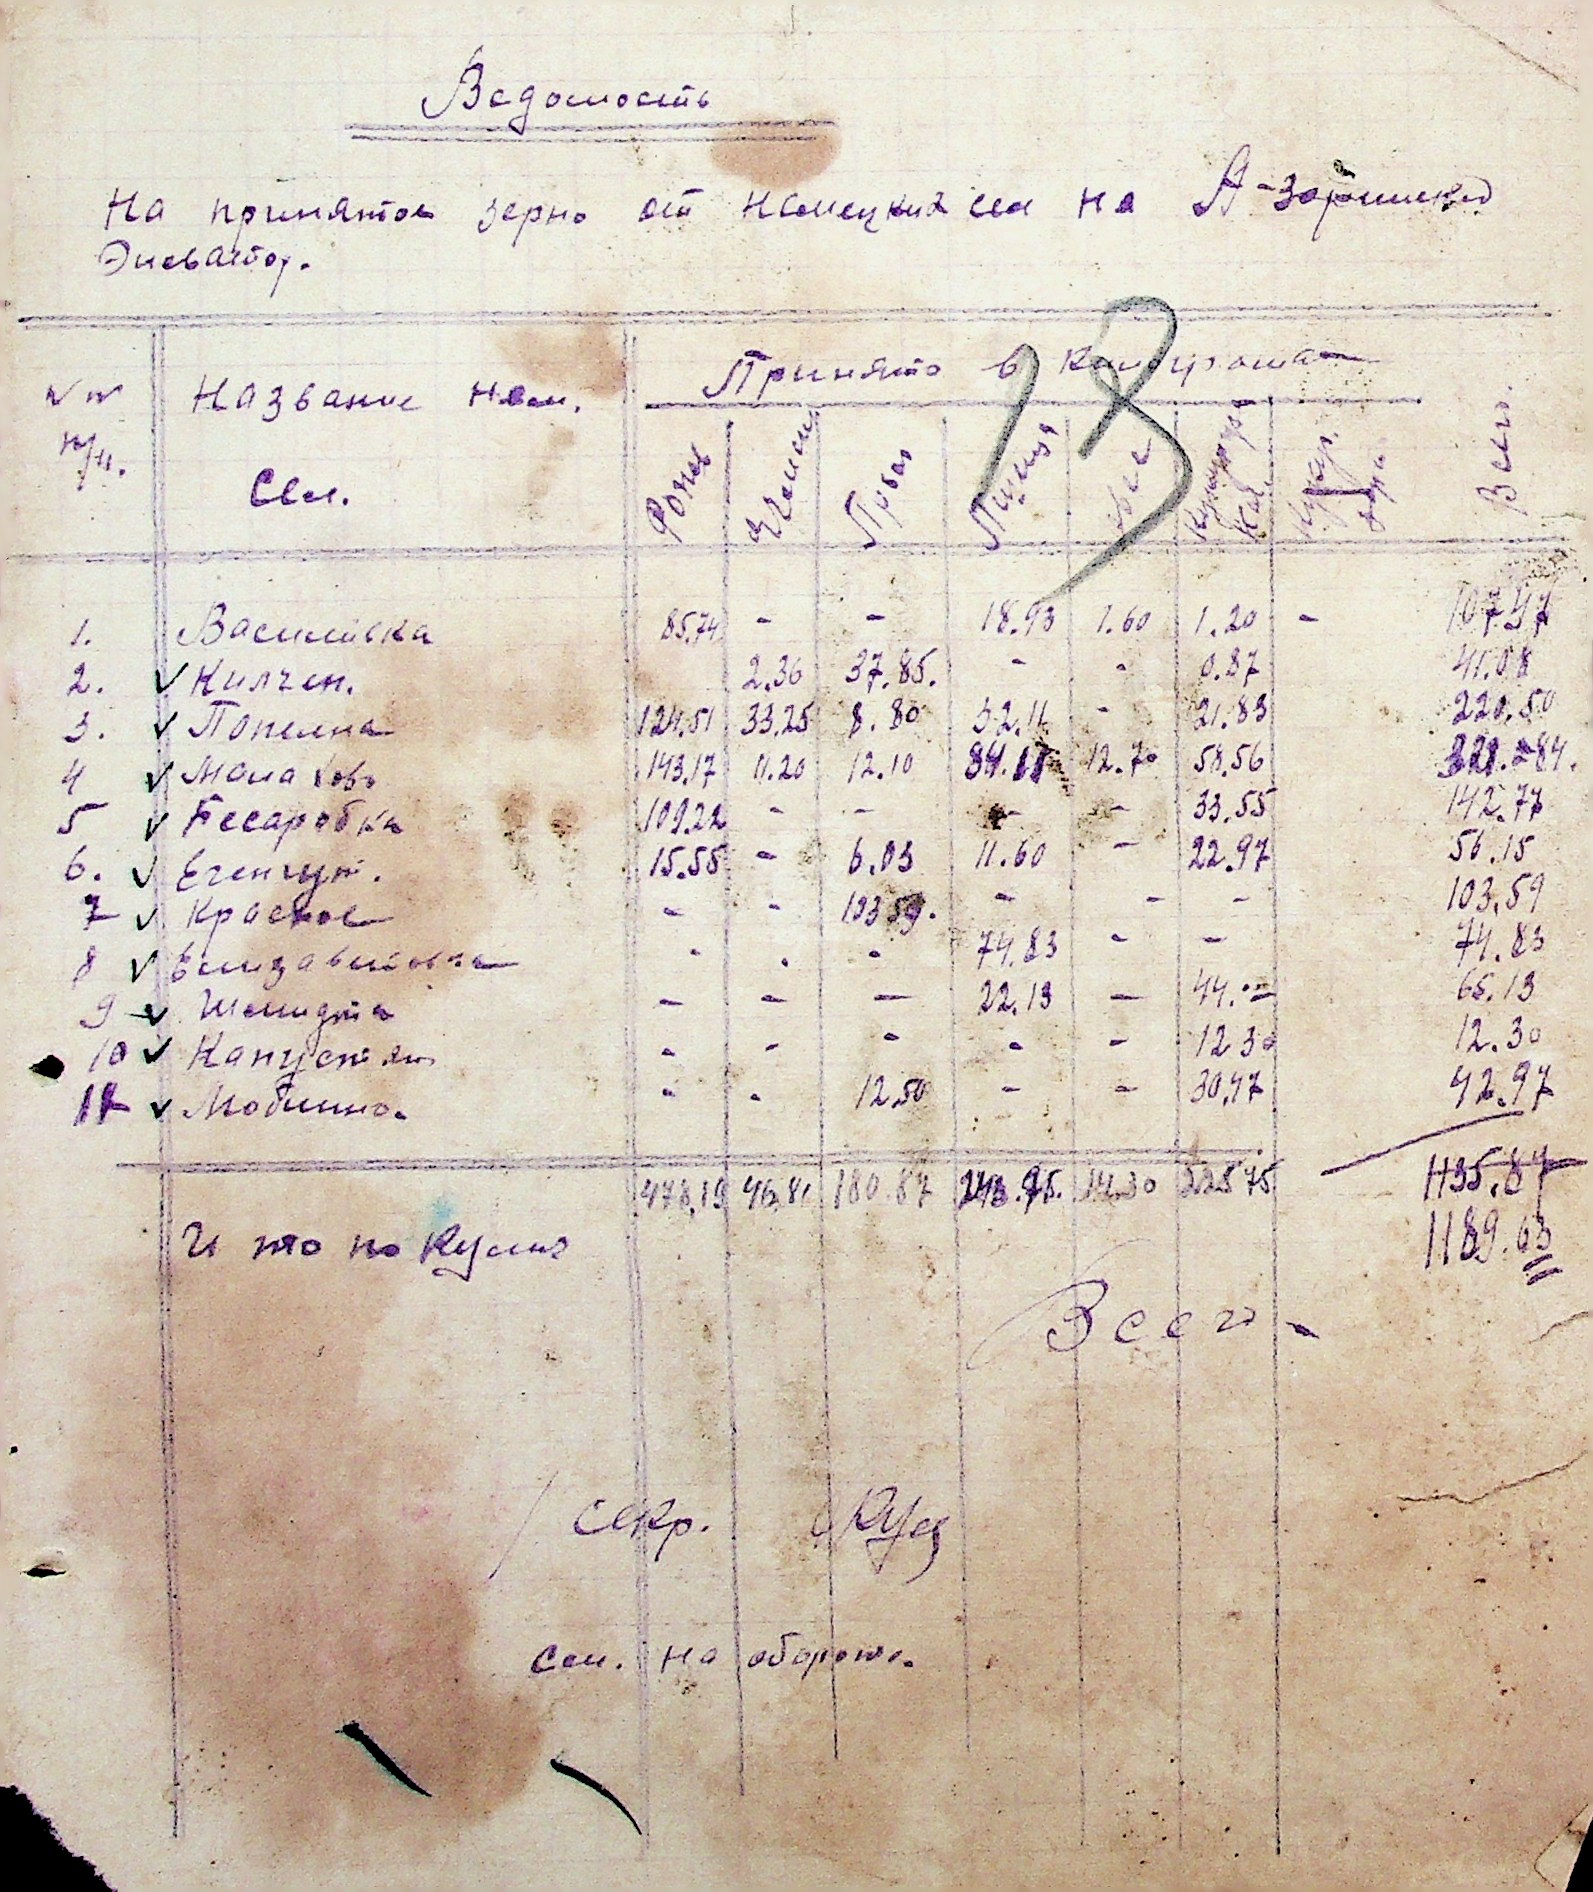 Ведомость
На принятое зерно от немецких сел на А-
Элеватор.
13
№№ п/п. Название нем. Сел. Принято в килограмах Всего.
Рожь Ячмень Просо Пшениц Овес Кукуруз Кач. Кукур. зерн
1. Василивка 85.74 - - 18.93 1.60 1.20 - 107.47
2. Килчен. 2.36 37.85. - - 0.87 41.08
3. Попелна 124.51 33.25 8.80 32.11 - 21.83 220.50
4 Малахово 143.17 11.20 12.10 84.11 12.70 58.56 321.84.
5 Бесаробка 109.22 - - - - 33.55 142.77
6. 15.55 - 6.03 11.60 - 22.97 56.15
7 Красное - - 103.59. - - - 103.59
8 Елизаветовка - . - 74.83 - - 74.83
9 Шмидта - - - 22.13 - 44.- 66.13
10 - - - - - 12.30 12.30
11 - . 12.50 - - 30.47 42.97
478.19 46.81 180.87 243.95. 14.30 225.75 1135.87
И то по 1189.63
Всего -
Секр.
См. на обороте.